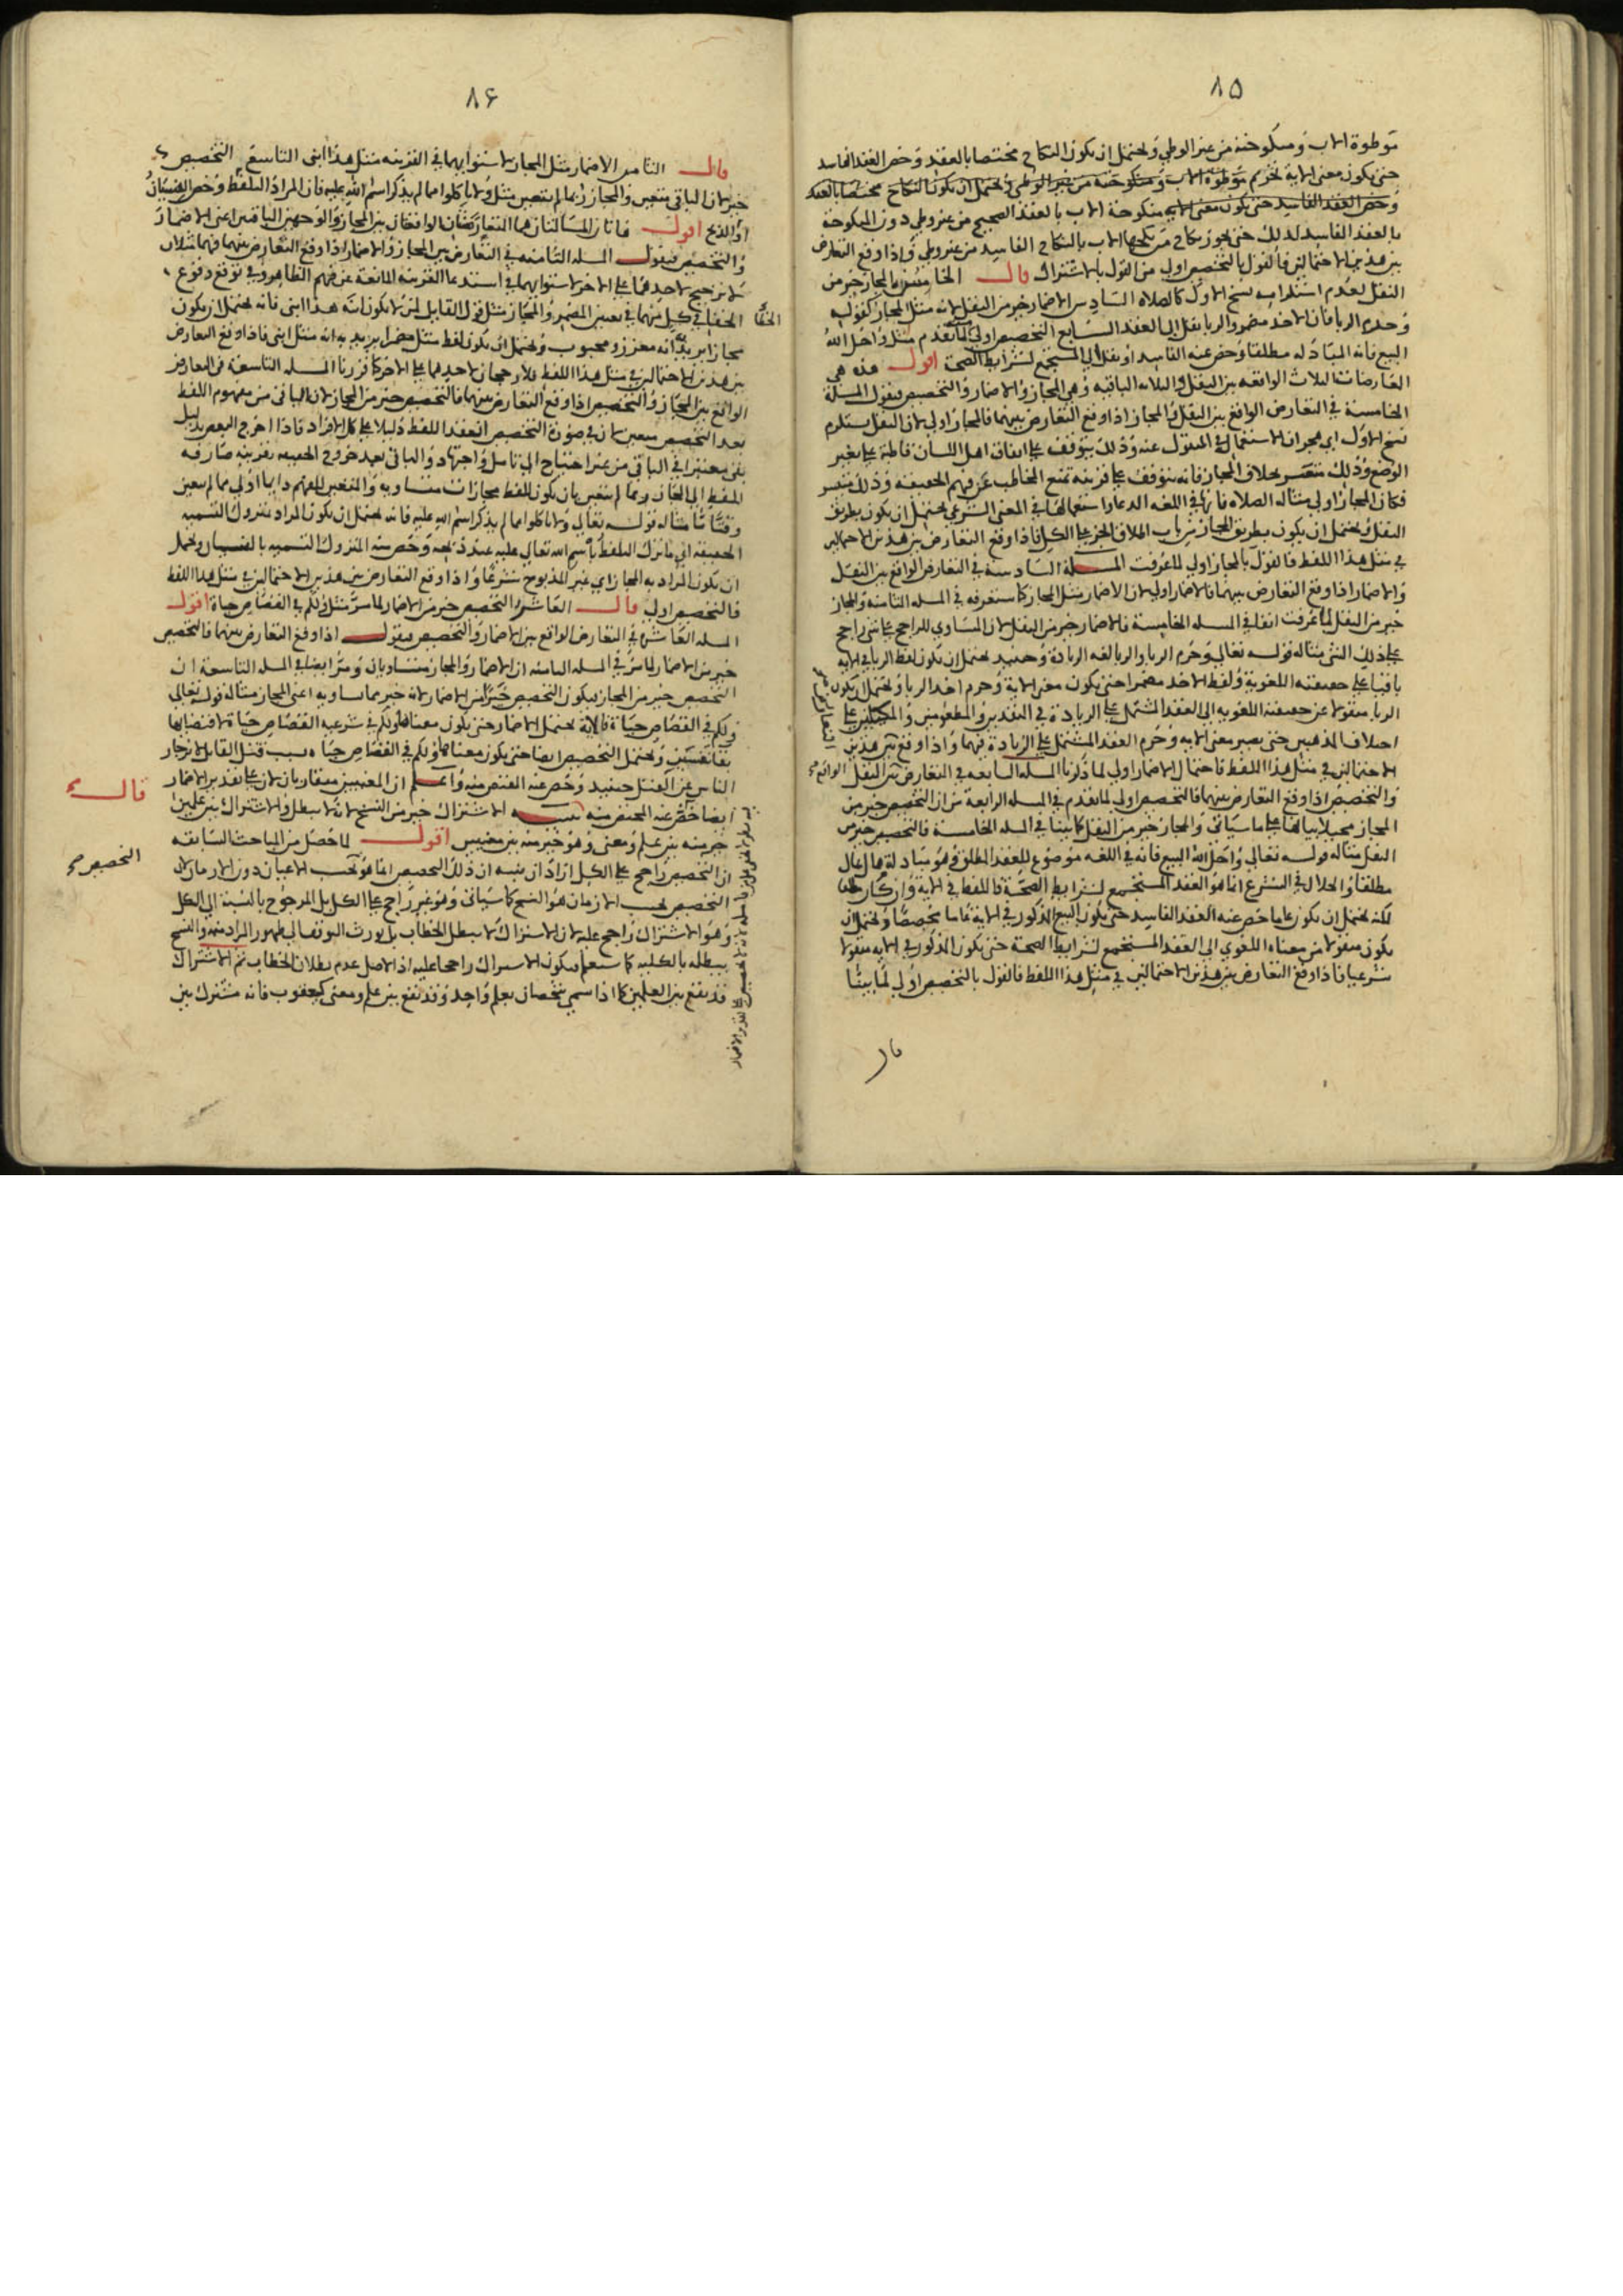 ٨٥
موطوة الاب ومنكوحته من غير الوطي ويحتمل ان يكون النكاح مختصا بالعقد وخص العقد الفاسد
حتى يكون معنى الاية تحريم موطوة الاب ومنكوحته من غير الوطي ويحتمل ان يكون النكاح مختصا بالعقد
وخص العقد الفاسد حتى يكون معنى الاية منكوحة الاب بالعقد الصحيح من غير وطي دون المنكوحة
بالعقد الفاسد لذلك حتى يجوز نكاح من نكحها الاب بالنكاح الفاسد من غير وطي واذا وقع التعارض
بين هذين الاحتمالين فالقول بالتخصيص اولى من القول بالاشتراك قال الخامس المجاز خير من
النقل لعدم استلزامه نسخ الاول كالصلاه السادس الاضمار خير من النقل لانه مثل المجاز كقوله
وحرم الربا فان الاخذ مضمر والربا نقل الى العقد السابع التخصيص اولى لما تقدم مثل واحل الله
البيع فانه المبادله مطلقا وخص عنه الفاسد او نقل الى المستجمع لشرايط الصحة اقول هذه هي
التعارضات الثلاث الواقعه بين النقل والثلاثه الباقيه وهي المجاز والاضمار والتخصيص فنقول المسلة
الخامسة في التعارض الواقع بين النقل والمجاز اذا وقع التعارض بينهما فالمجاز اولى لان النقل يستلزم
نسخ الاول اي هجران الاستعمال في المنقول عنه وذلك يتوقف على اتفاق اهل اللسان قاطبة على تغير
الوضع وذلك متعسر بخلاف المجاز فانه يتوقف على قرينه تمنع المخاطب عن فهم الحقيقه وذلك متيسر
فكان المجاز اولى مثاله الصلاه فانها في اللغه الدعا واستعمالها في المعنى الشرعي يحتمل ان يكون بطريق
النقل ويحتمل ان يكون بطريق المجاز من باب اطلاق الجز على الكل فاذا وقع التعارض بين هذين الاحتمالين
في مثل هذا اللفظ فالقول بالمجاز اولى لما عرفت المسلة السادسة في التعارض الواقع بين النقل
والاضمار اذا وقع التعارض بينهما فالاضمار اولى لان الاضمار مثل المجاز كما ستعرفه في المسله الثامنه والمجاز
خير من النقل لما عرفت انفا في المسله الخامسة فالاضمار خير من النقل لان المساوي للراجح على شي راجح
على ذلك الشي مثاله قوله تعالى وحرم الربا والربا لغه الزيادة وحينيذ يحتمل ان يكون لفظ الربا في الاية
باقيا على حقيقته اللغوية ولفظ الاخذ مضمرا حتى يكون معنى الاية وحرم اخذ الربا ويحتمل ان يكون
الربا منقولا عن حقيقته اللغويه الى العقد المشتمل على الزيادة في النقدين والمطعومين والمكيلين على
اختلاف المذهبين حتى يصير معنى الايه وحرم العقد المشتمل على الزيادة فيهما واذا وقع بين هذين
الاحتمالين في مثل هذا اللفظ فاحتمال الاضمار اولى لما ذكرنا المسله السابعه في التعارض الواقع بين النقل
والتخصيص اذا وقع التعارض بينهما فالتخصيص اولى لما تقدم في المسله الرابعة من ان التخصيص خير من
المجاز محيلا بيانها على ما سياتى والمجاز خير من النقل كما بينا في المسله الخامسة فالتخصيص خير من
النقل مثاله قوله تعالى واحل الله البيع فانه في اللغه موضوع للعقد المطلق وهو مبادلة مال بمال
مطلقا والحلال في الشرع انما هو العقد المستجمع لشرايط الصحة فاللفظ في الاية وان كان مطلقا
لكنه يحتمل ان يكون عاما خص عنه العقد الفاسد حتى يكون البيع المذكور في الاية عاما مخصصا ويحتمل ان
يكون منقولا من معناه اللغوي الى العقد المستجمع لشرايط الصحة حتى يكون المذكور في الايه منقولا
شرعيا فاذا وقع التعارض بين هذين الاحتمالين في مثل هذا اللفظ فالقول بالتخصيص اولى لما بينا
قال
٨۶
قال الثامن الاضمار مثل المجاز لاستوايهما في القرينه مثل هذا ابنى التاسع التخصيص
خير لان الباقي متعين والمجاز ربما لم يتعين مثل ولا تاكلوا مما لم يذكر اسم الله عليه فان المراد التلفظ وخص النسيان
او الذبح اقول هاتان المسالتان هما التعارضان الواقعان بين المجاز والوجهين الباقيين اعنى الاضمار
والتخصيص فنقول المسله الثامنه في التعارض بين المجاز والاضمار اذا وقع التعارض بينهما فهما مثلان
لا ترجيح لاحدهما على الاخر لاستوايهما في استدعا القرينه المانعة عن فهم الظاهر وفي توقع وقوع
الخفا في كل منهما في تعيين المضمر والمجاز مثل قول القايل لمن لا يكون ابنه هذا ابنى فانه يحتمل ان يكون
مجازا يريد به انه معزز ومحبوب ويحتمل ان يكون لفظ مثل مضمرا يريد به انه مثل ابنى فاذا وقع التعارض
بين هذين الاحتمالين في مثل هذا اللفظ فلا رجحان لاحدهما على الاخر كما قررنا المسله التاسعة في التعارض
الواقع بين المجاز والتخصيص اذا وقع التعارض بينهما فالتخصيص خير من المجاز لان الباقى من مفهوم اللفظ
بعد التخصيص متعين لان في صورة التخصيص انعقد اللفظ دليلا على كل الافراد فاذا اخرج البعض بدليل
بقى معتبرا في الباقى من غير احتياج الى تامل واجتهاد والباقى بعد خروج الحقيقه بقرينة صارفه
للفظ الى المجاز ربما لم يتعين بان يكون للفظ مجازات متساويه والمتعين للفهم دايما اولى مما لم يتعين
وقتا ما مثاله قوله تعالى ولا تاكلوا مما لم يذكر اسم الله عليه فانه يحتمل ان يكون المراد متروك التسميه
الحقيقة اي ما ترك التلفظ باسم الله تعالى عليه عند ذبحه وخص منه المتروك التسميه بالنسيان ويحتمل
ان يكون المراد به المجاز اي غير المذبوح شرعا واذا وقع التعارض بين هذين الاحتمالين في مثل هذا اللفظ
فالتخصيص اولى قال العاشر التخصيص خير من الاضمار لما مر مثل ولكم في القصاص حياة اقول
المسله العاشرة في التعارض الواقع بين الاضمار والتخصيص فنقول اذا وقع التعارض بينهما فالتخصيص
خير من الاضمار لما مر في المسله الثامنه ان الاضمار والمجاز متساويان ومر ايضا في المسله التاسعة ان
التخصيص خير من المجاز فيكون التخصيص خيرا من الاضمار لانه خير مما يساويه اعنى المجاز مثاله قوله تعالى
ولكم في القصاص حياة فالاية تحتمل الاضمار حتى يكون معناها ولكم في شرعيه القصاص حياة لاقتضايها
بقا نفسين ويحتمل التخصيص ايضا حتى يكون معناها ولكم في القصاص حياة بسبب قتل القاتل لانزجار
الناس عن القتل حينيذ وخص عنه المقتص منه واعلم ان المعنيين متقاربان لان على تقدير الاضمار
ايضا خص عنه المقتص منه تنبيه الاشتراك خير من النسخ لانه لا يبطل والاشتراك بين علمين
خير منه بين علم ومعنى وهو خير منه بين معنيين اقول لما حصل من المباحث السابقه
ان التخصيص راجح على الكل اراد ان ينبه ان ذلك التخصيص انما هو بحسب الاعيان دون الازمان لان
التخصيص بحسب الازمان هو النسخ كما سياتى وهو غير راجح على الكل بل المرجوح بالنسبة الى الكل
وهو الاشتراك راجح عليه لان الاشتراك لا يبطل الخطاب بل يورث التوقف الى ظهور المراد منه والنسخ
يبطله بالكليه كما ستعلم فيكون الاشتراك راجحا عليه اذ الاصل عدم بطلان الخطاب ثم الاشتراك
قد يقع بين العلمين كما اذا سمى شخصان بعلم واحد وقد يقع بين علم ومعنى كيعقوب فانه مشترك بين
الخفا
قال
التخصيص